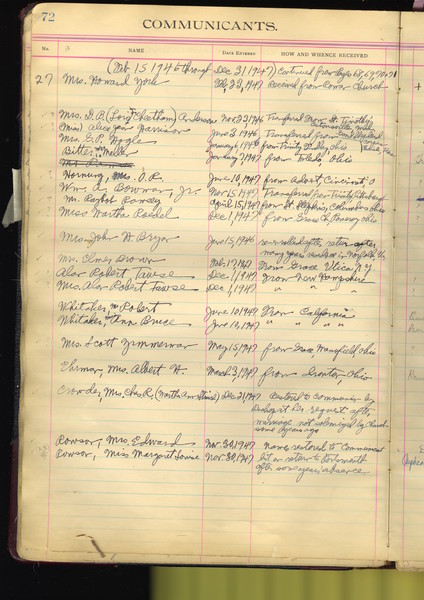 72
COMMUNICANTS.
No. NAME DATE ENTERED HOW AND WHENCE RECEIVED
(Feb. 15 1946 through Dec 31 1947) Continued from pages 68, 69, 70, 71
27 Mrs. Howard York Feb, 23, 1947 Received from Church
Mrs. D. B. (Cheetham) Anderson Nov 22, 1946 Transferred from St. Timothy's
Miss Alice Jean Garrison June 2 1946 Transferred from
Mrs. E. P. 1946 from Trinity, Ohio
Bitter, 1947 from Toledo, Ohio
Hornung, Mrs. O. R. June 10, 1947 from Advent Cincinnati O
Wm. A. Bowman Jr. Nov 15, 1947 Transferred from Trinity
April 15, 1947 from St. Stephen's, Columbus Ohio
Miss Martha Dec 1, 1947 from Grace Ch, Ohio
Mrs. John A Bryan June 15, 1946 re-enrolled after return after
many years residence in Norfolk, Va
Mrs. Elmer Brown Feb 17, 1947 From Grace Utica, N.Y.
Alan Robert Tawse Dec, 1, 1947 From New Hampshire
Mrs. Alan Robert Tawse Dec, 1, 1947 " " "
Whitaker, Robert June 10, 1947 From California
Whitaker, Ann Bruce June 10, 1947 " "
Mrs. Scott Zimmerman May 15, 1947 from Grace Mansfield, Ohio
Ehrman Mrs. Albert W. March 3, 1947 from Ironton, Ohio
Crowder, Mrs. Chas R. (Martha Ann) Dec 21, 1947 Restored to communion by
Bishop at his request after
marriage not solemnized by Church
some years ago
Rowson, Mrs. Edward Nov. 30, 1947 names restored to Communicant
Rowson, Miss Margaret Louise Nov. 30, 1947 list on return to Portsmouth
after some years absence